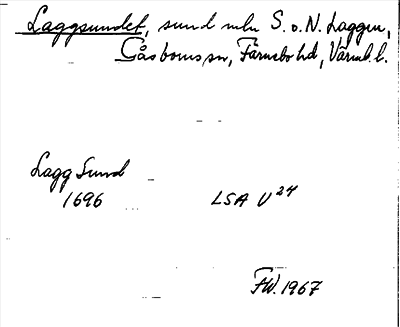 Laggsundet, sund mln S. o. N. Laggen,
Gåsborns sn, Färnebo hd, Värml. l.
Lagg Sund
1696 LSA U 24
FW. 1967